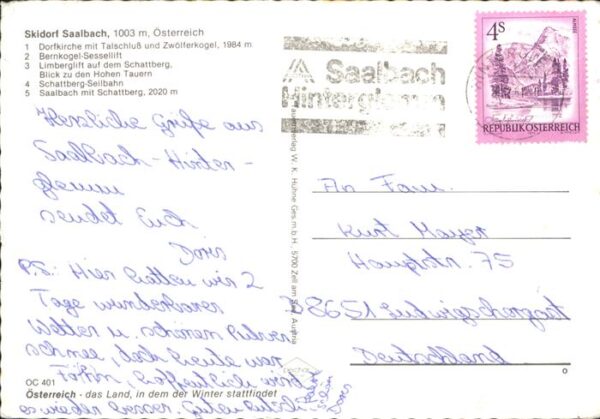 Skidorf Saalbach, 1003 m, Österreich
1 Dorfkirche mit Talschluß und Zwölferkogel, 1984 m
2 Bernkogel-Sessellift
3 Limberglift auf dem Schattberg,
Blick zu den Hohen Tauern
4 Schattberg-Seilbahn
5 Saalbach mit Schattberg, 2020 m
Herzliche Grüße aus
Saalbach-Hinter-
glemm
sendet Euch
Doris
P.S.: Hier hatten wir 2
Tage wunderbares
Wetter u. schönen Pulver-
schnee, doch heute war
Föhn, hoffentlich wird
es wieder besser.
Doris
OC 401
Österreich - das Land, in dem der Winter stattfindet
W. K. Hühne Ges.m.b.H. 5700 Zell am See, Austria
Saalbach
Hinterglemm
4S
REPUBLIK ÖSTERREICH
An Fam.
Kurt Mayer
Hauptstr. 75
D 8651 Ludwigschorgast
Deutschland